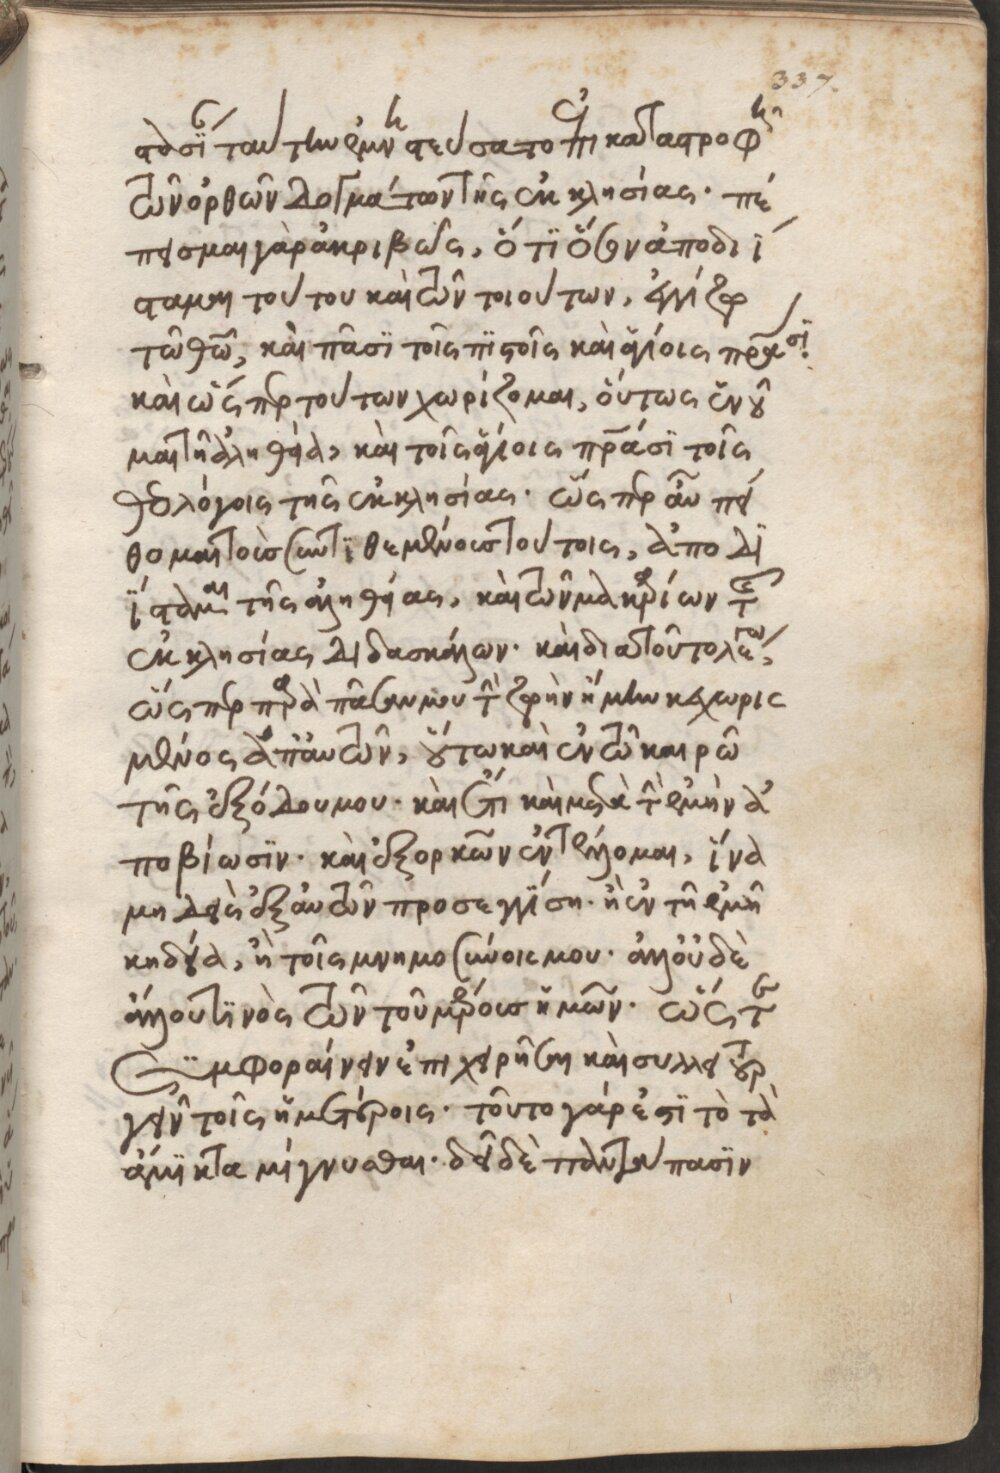 337.
στασιν ταύτην ἐμνηστεύσατο ἐπὶ καταστροφῇ
τῶν ὀρθῶν δογμάτων τῆς ἐκκλησίας· πέ
πεισμαι γὰρ ἀκριβῶς, ὅτι ὅσον ἀποδιί
σταμαι τούτου καὶ τῶν τοιούτων, ἐγγίζω
τῶ θεῶ, καὶ πᾶσι τοῖς πιστοῖς καὶ ἁγίοις πατράσι·
καὶ ὥσπερ τούτων χωρίζομαι, οὕτως ἑνοῦ
μαι τῇ ἀληθεία, καὶ τοῖς ἁγίοις πατράσι τοῖς
θεολόγοις τῆς ἐκκλησίας· ὥσπερ αὖ πεί
θομαι τοὺς συντιθεμένους τούτοις, ἀποδι
ίστασθαι τῆς ἀληθείας, καὶ τῶν μακαρίων τῆς
ἐκκλησίας διδασκάλων· καὶ διατοῦτο λέγω,
ὥσπερ παρὰ πᾶσάν μου τὴν ζωὴν ἤμην κεχωρισ
μένος ἀπ' αὐτῶν, οὕτω καὶ ἐν τῶ καιρῶ
τῆς ἐξόδου μου· καὶ ἔτι καὶ μετὰ τὴν ἐμὴν ἀ
ποβίωσιν· καὶ ἐξορκῶν ἐντέλλομαι, ἵνα
μηδεὶς ἐξ αὐτῶν προσεγγίση· ἢ ἐν τῇ ἐμῇ
κηδεία, ἢ τοῖς μνημοσύνοις μου· ἀλλ' οὐδὲ
ἄλλου τινὸς τῶν τοῦ μέρους ἡμῶν· ὥστε
συμφοραίνειν ἐπιχειρῆσαι καὶ συλλειτουρ
γεῖν τοῖς ἡμετέροις· τοῦτο γάρ ἐστι τὸ τὰ
ἄμικτα μίγνυσθαι· δεῖ δὲ παντάπασιν